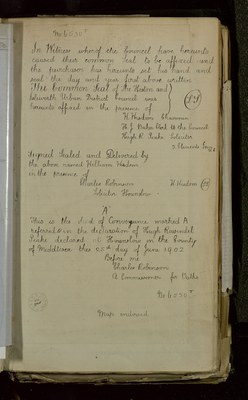 In Witness whereof the Council have hereunto
caused their common Seal to be affixed and
the purchaser has hereunto set his hand and
seal the day and year first above written
The Common Seal of The Heston and
Isleworth Urban District Council was
hereunto affixed in the presence of
Chairman
Clerk to the Council
Solicitor
Signed Sealed and Delivered by
the above named William
in the presence of
Charles Robinson
Solicitor Hounslow
"A"
This is the Deed of Conveyance marked A
referred to in the declaration of Hugh
declared at Hounslow in the County
of Middlesex this day of June 1903
Before me
Charles Robinson
A Commissioner for Oaths
Map enclosed